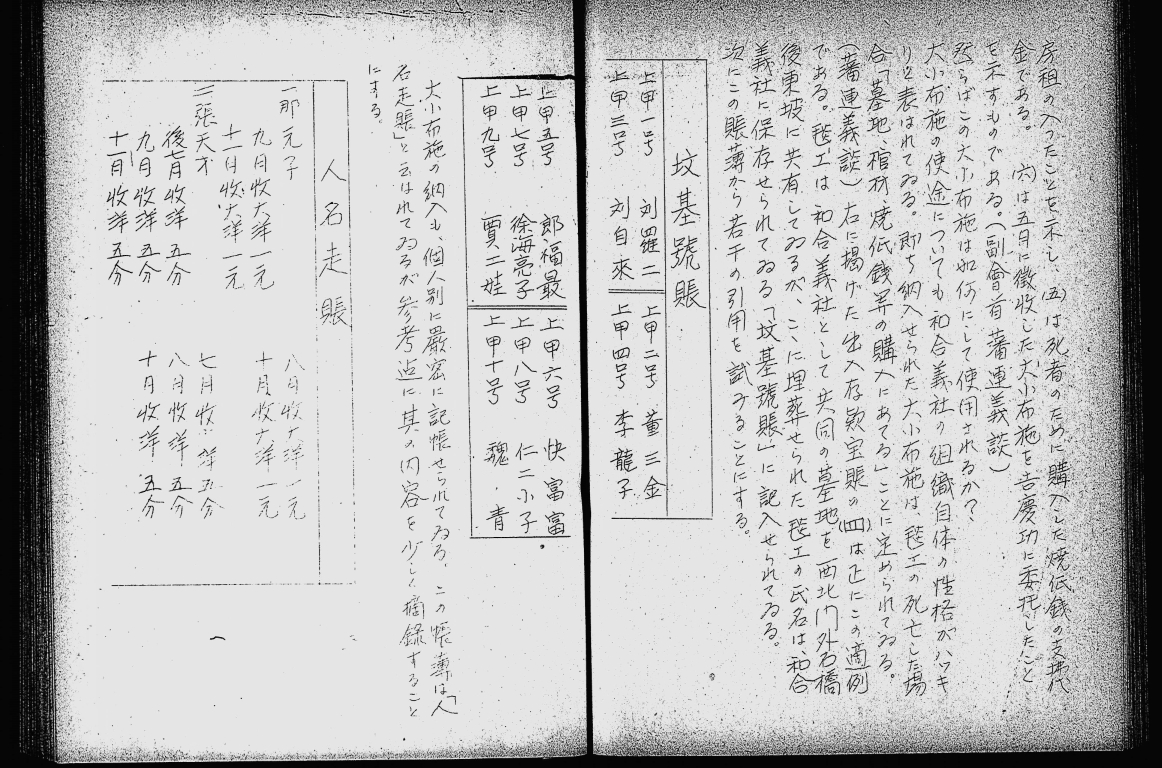 房租の入つたことを示し、(五)は死者のために購入した焼低銭の支拂代
金である。(六)は五月に徴收した大小布施を吉慶功に委托したこと
を示すものである。(副會首蕃連義談)
然らばこの大小布施は如何にして使用されるか?
大小布施の使途についても和合義社の組織自体の性格がハツキ
りと表はれてゐる。即ち納入せられた大小布施は、毯工の死亡した場
合「墓地、棺材、焼低銭等の購入にあてる」ことに定められてゐる。
(蕃連義談)右に揚げた出入存欵宝賬の(四)は正にこの適例
である。毯工は和合義社として共同の墓地を西北門外石橋
後東坡に共有してゐるが、こゝに埋葬せられた毯工の氏名は、和合
義社に保存せられてゐる「坟基號賬」に記入せられてゐる。
次にこの賬薄から若干の引用を試みることにする。
坟基號賬
上甲一号 刘羅二 上甲二号 董三金
上甲三号 刘自來 上甲四号 李龍子
上甲五号 郎福最 上甲六号 快富富
上甲七号 徐海亮子 上甲八号 仁二小子
上甲九号 賈二娃 上甲十号 魏・青
大小布施の納入も、個人別に嚴密に記帳せられてゐる。この帳薄は「人
名走賬」と云はれてゐるが参考迠に其の内容を少しく摘録すること
にする。
人名走賬
一那元子 八月收大洋一元
九月收大洋一元 十月收大洋一元
十一月收大洋一元
三張天才 七月收洋五分
後七月收洋五分 八月收洋五分
九月收洋五分 十月收洋五分
十一月收洋五分